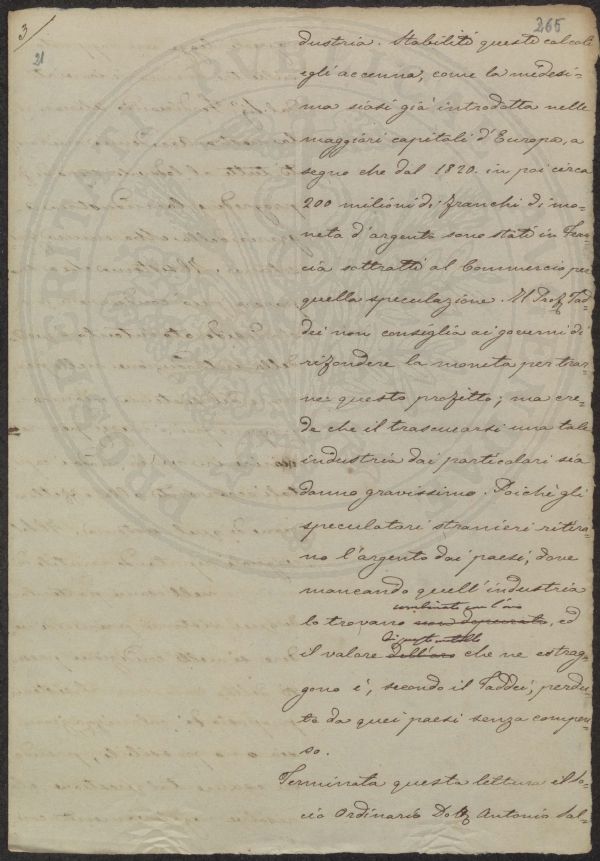 3
21
265
dustria. Stabiliti questi calcoli
egli accenna, come la medesi-
ma siasi già introdotta nelle
maggiori capitali d'Europa, a
segno che dal 1820. in poi circa
200 milioni di franchi di mo-
neta d'argento sono stati in Fran-
cia sottratti al Commercio per
quella speculazione. Il Prof. Tad-
dei non consiglia ai governi di
rifondere la moneta per trar-
ne questo profitto; ma cre-
de che il trascurarsi una tale
industria dai particolari sia
danno gravissimo. Poichè gli
speculatori stranieri ritira-
no l'argento dai paesi, dove
mancando quell'industria
combinato con l'oro
lo trovano non depurato, ed
di questo metallo
il valore dell'oro che ne estrag-
gono è, secondo il Taddei, perdu-
to da quei paesi senza compen-
so.
Terminata questa lettura il So-
cio Ordinario Dott. Antonio Sal-
PROSPERITATI PUBLICAE